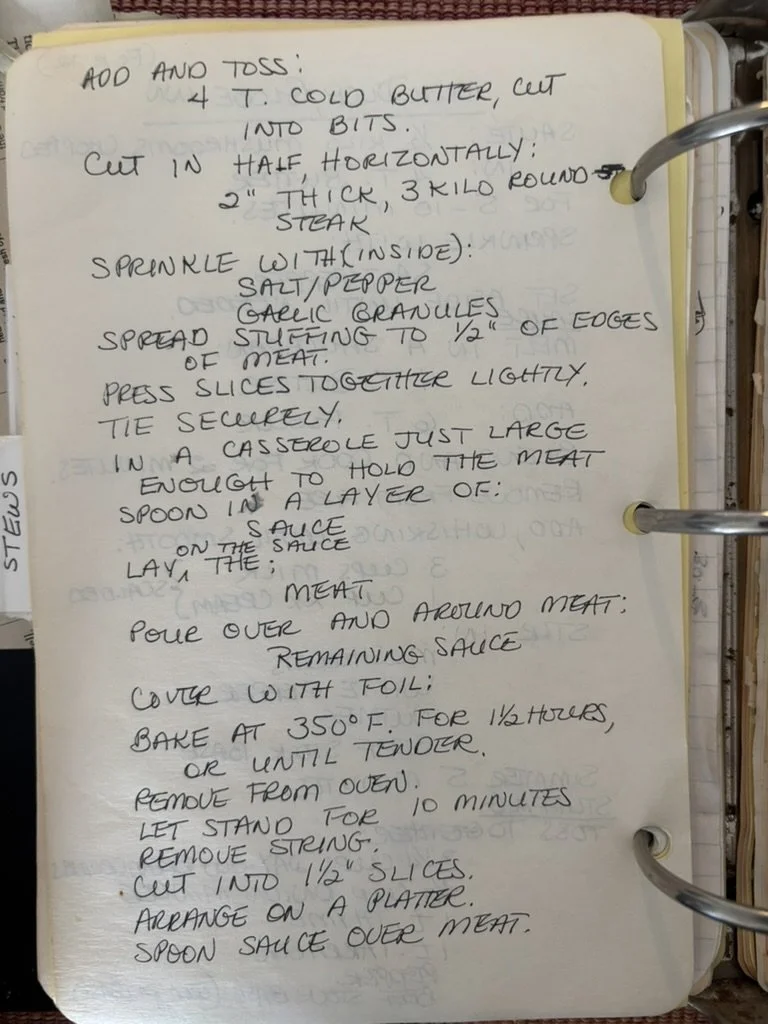 ADD AND TOSS:
4 T. COLD BUTTER, CUT
INTO BITS.
CUT IN HALF, HORIZONTALLY:
2" THICK, 3 KILO ROUND
STEAK
SPRINKLE WITH (INSIDE):
SALT/PEPPER
GARLIC GRANULES
SPREAD STUFFING TO 1/2" OF EDGES
OF MEAT.
PRESS SLICES TOGETHER LIGHTLY.
TIE SECURELY.
IN A CASSEROLE JUST LARGE
ENOUGH TO HOLD THE MEAT
SPOON IN A LAYER OF:
SAUCE
ON THE SAUCE
LAY, THE:
MEAT
POUR OVER AND AROUND MEAT:
REMAINING SAUCE
COVER WITH FOIL:
BAKE AT 350° F. FOR 1 1/2 HOURS,
OR UNTIL TENDER.
REMOVE FROM OVEN.
LET STAND FOR 10 MINUTES
REMOVE STRING.
CUT INTO 1 1/2" SLICES.
ARRANGE ON A PLATTER.
SPOON SAUCE OVER MEAT.
STEWS